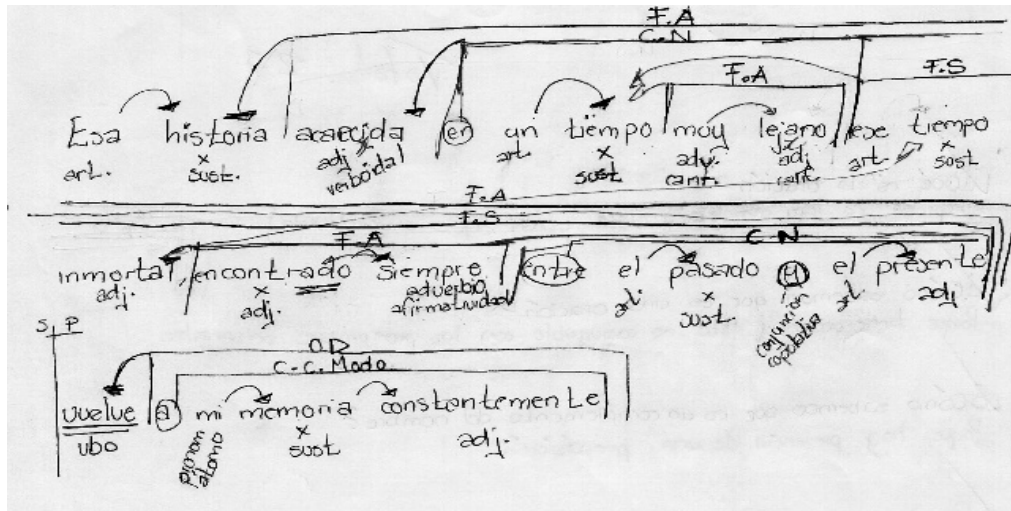 F.A
C.N
F.A F.S
Esa historia acaecida en un tiempo muy lejano ese tiempo
art. x sust. adj verboidal art. x sust adv. cant. x adj. art. x sost
F.A
F.S
F.A C.N
inmortal, encontrado siempre entre el pasado y el presente
adj. x adj. adverbio afirmatividad x sust. conjunción copulativa adj
S P
O.D
C.C. Modo
vuelve a mi memoria constantemente
vbo pronom átomo x sust adj.